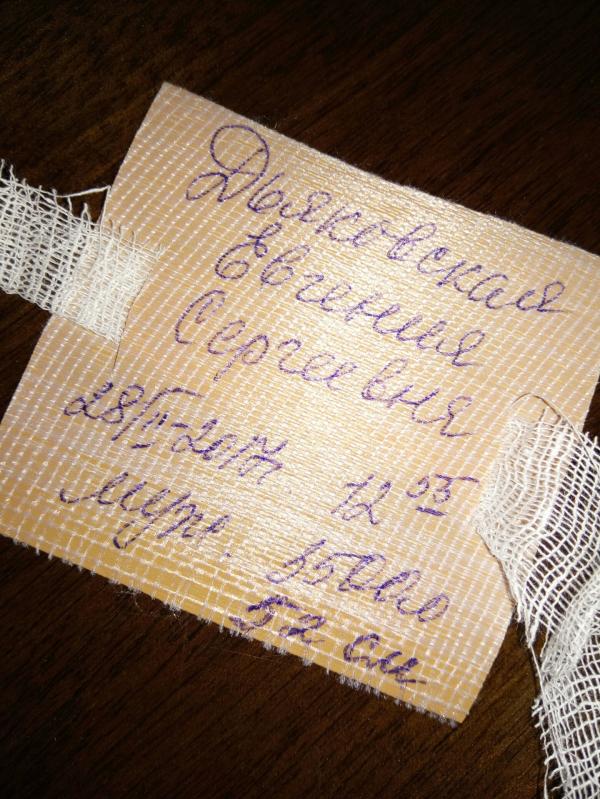 Дьяковская
Евгения
Сергеевня
28/II-2017г. 12 55
муж.
52 см